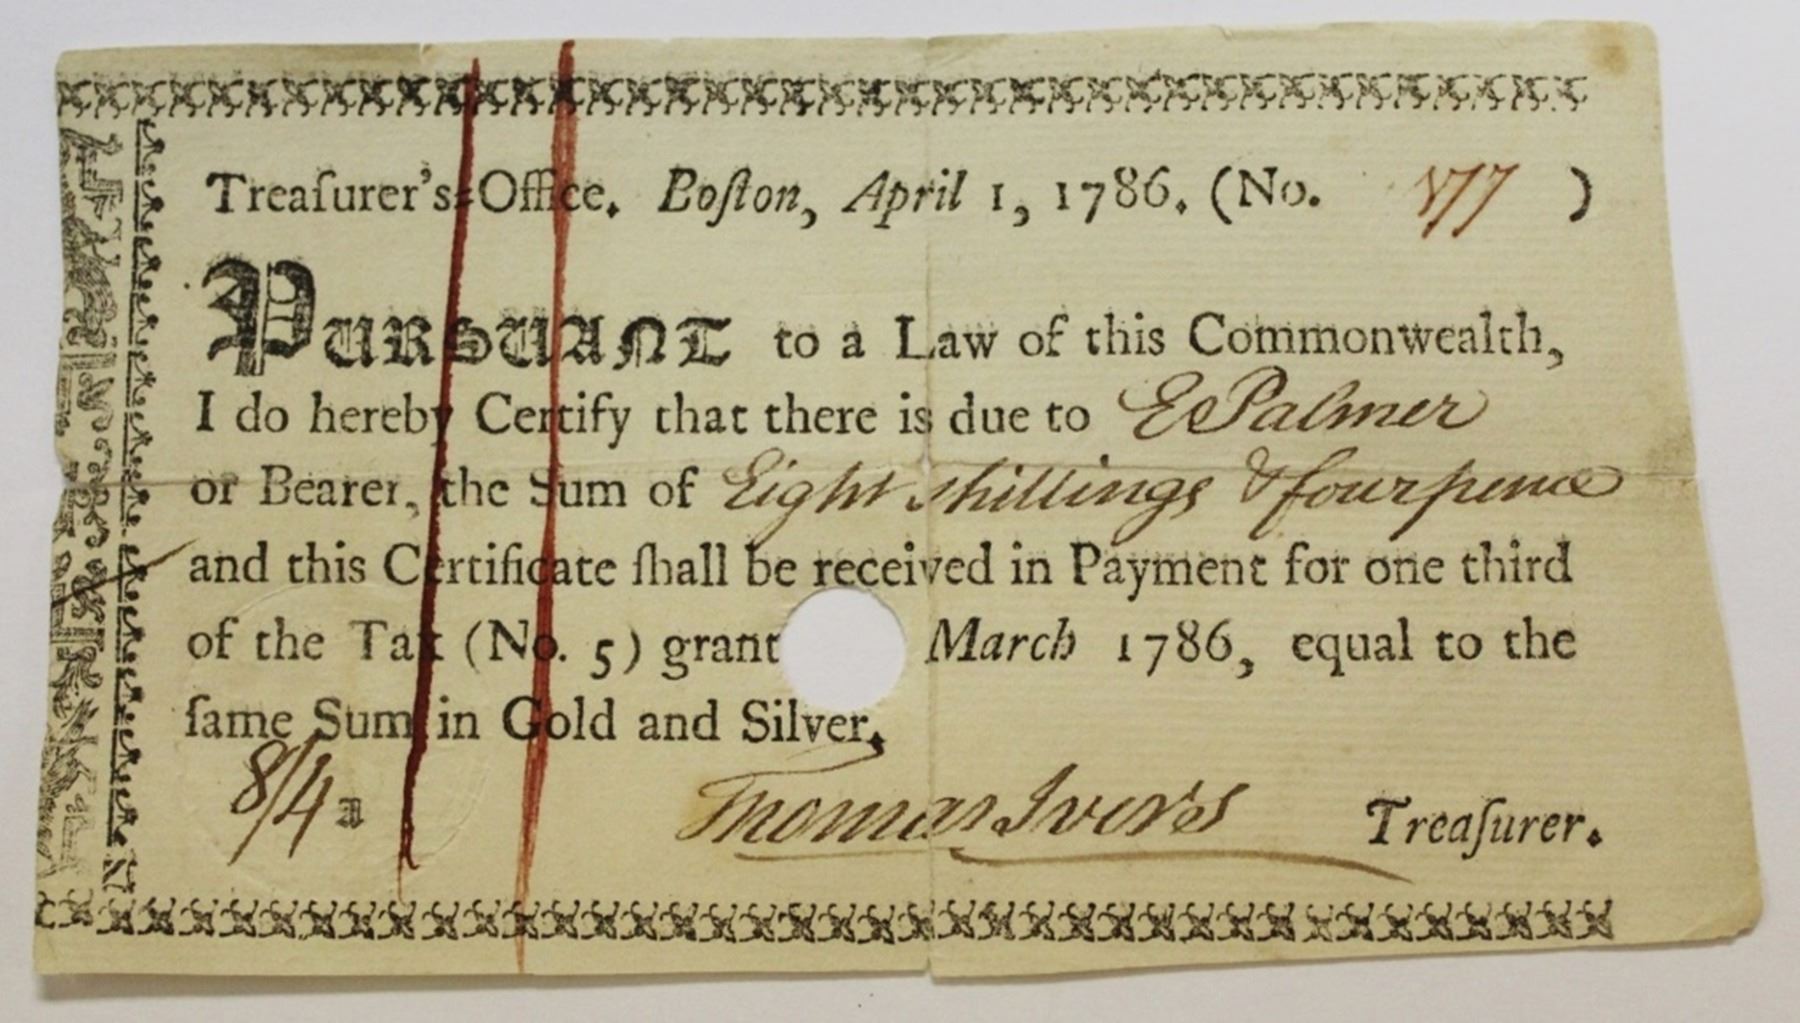 Treaſurer's-Office. Boſton, April 1, 1786. (No. 177 )
PURSUANT to a Law of this Commonwealth,
I do hereby Certify that there is due to E Palmer
or Bearer, the Sum of Eight shillings & fourpence
and this Certificate ſhall be received in Payment for one third
of the Tax (No. 5) grant March 1786, equal to the
ſame Sum in Gold and Silver.
8/4 Thomas Ivers Treaſurer.